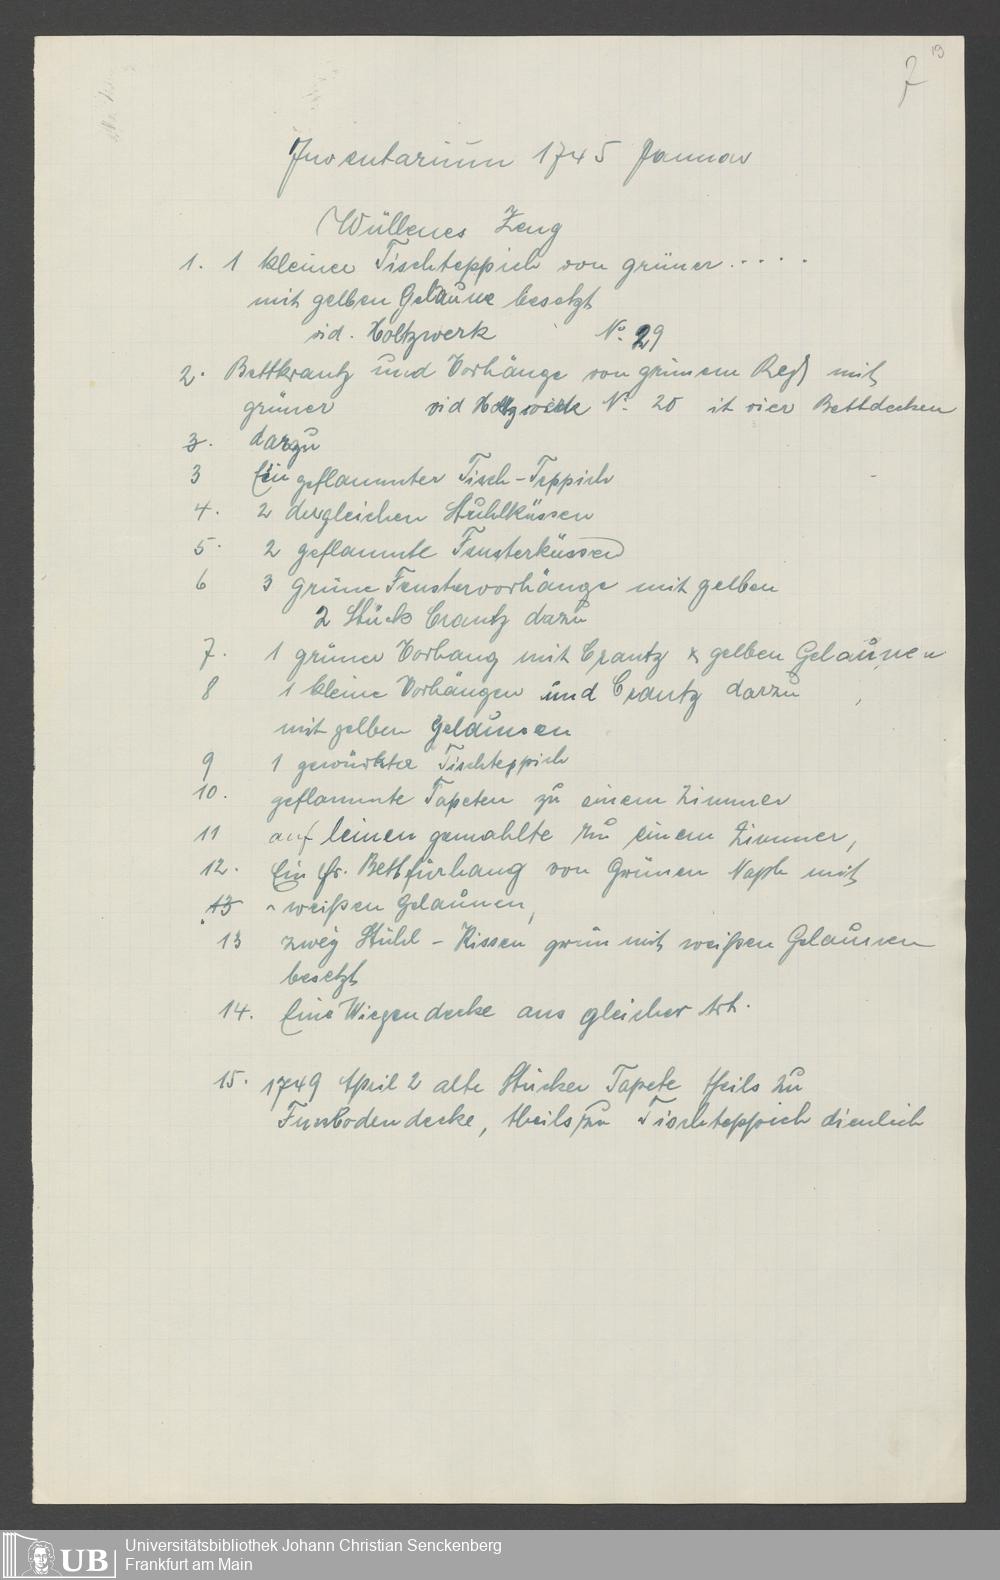 19
7
Inventarium 1745 Januar
Wüllenes Zeug
1. 1 kleiner Tischteppich von grüner . . . . .
mit gelben Galaune besetzt
vid. Holtzwerk No. 29
2. Bettkrantz und Vorhänge von grünem mit
grüner vid Holtzwerk N. 20 it vier Bettdecken
3. darzu
3 Ein geflammter Tisch-Teppich
4. 2 dergleichen Stuhlküssen
5. 2 geflammte Fensterküssen
6 3 grüne Fenstervorhänge mit gelben
2 Stück Crantz dazu
7. 1 grüner Vorhang mit Crantz & gelben Gelaunen
8 1 kleine Vorhängen und Crantz darzu
mit gelben Gelaunen
9 1 gewürkter Tischteppich
10. geflammte Tapeten zu einem Zimmer
11 auf leinen gemahlte zu einem Zimmer,
12. Ein gr. Bettfürhang von Grünen mit
13 weißen Gelaunen,
13 zwey Stühl-Kissen grün mit weißen Gelaunen
besetzt
14. Eine Wiegendecke aus gleicher Art.
15. 1749 April 2 alte Stücker Tapete theils zu
Fussbodendecke, theils zu Tischteppich dienlich
UB
Universitätsbibliothek Johann Christian Senckenberg
Frankfurt am Main